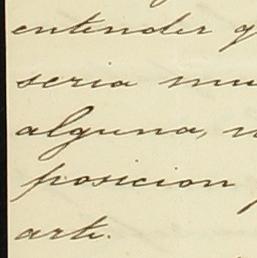 entender q
seria mu
alguna,
posicion
arte.